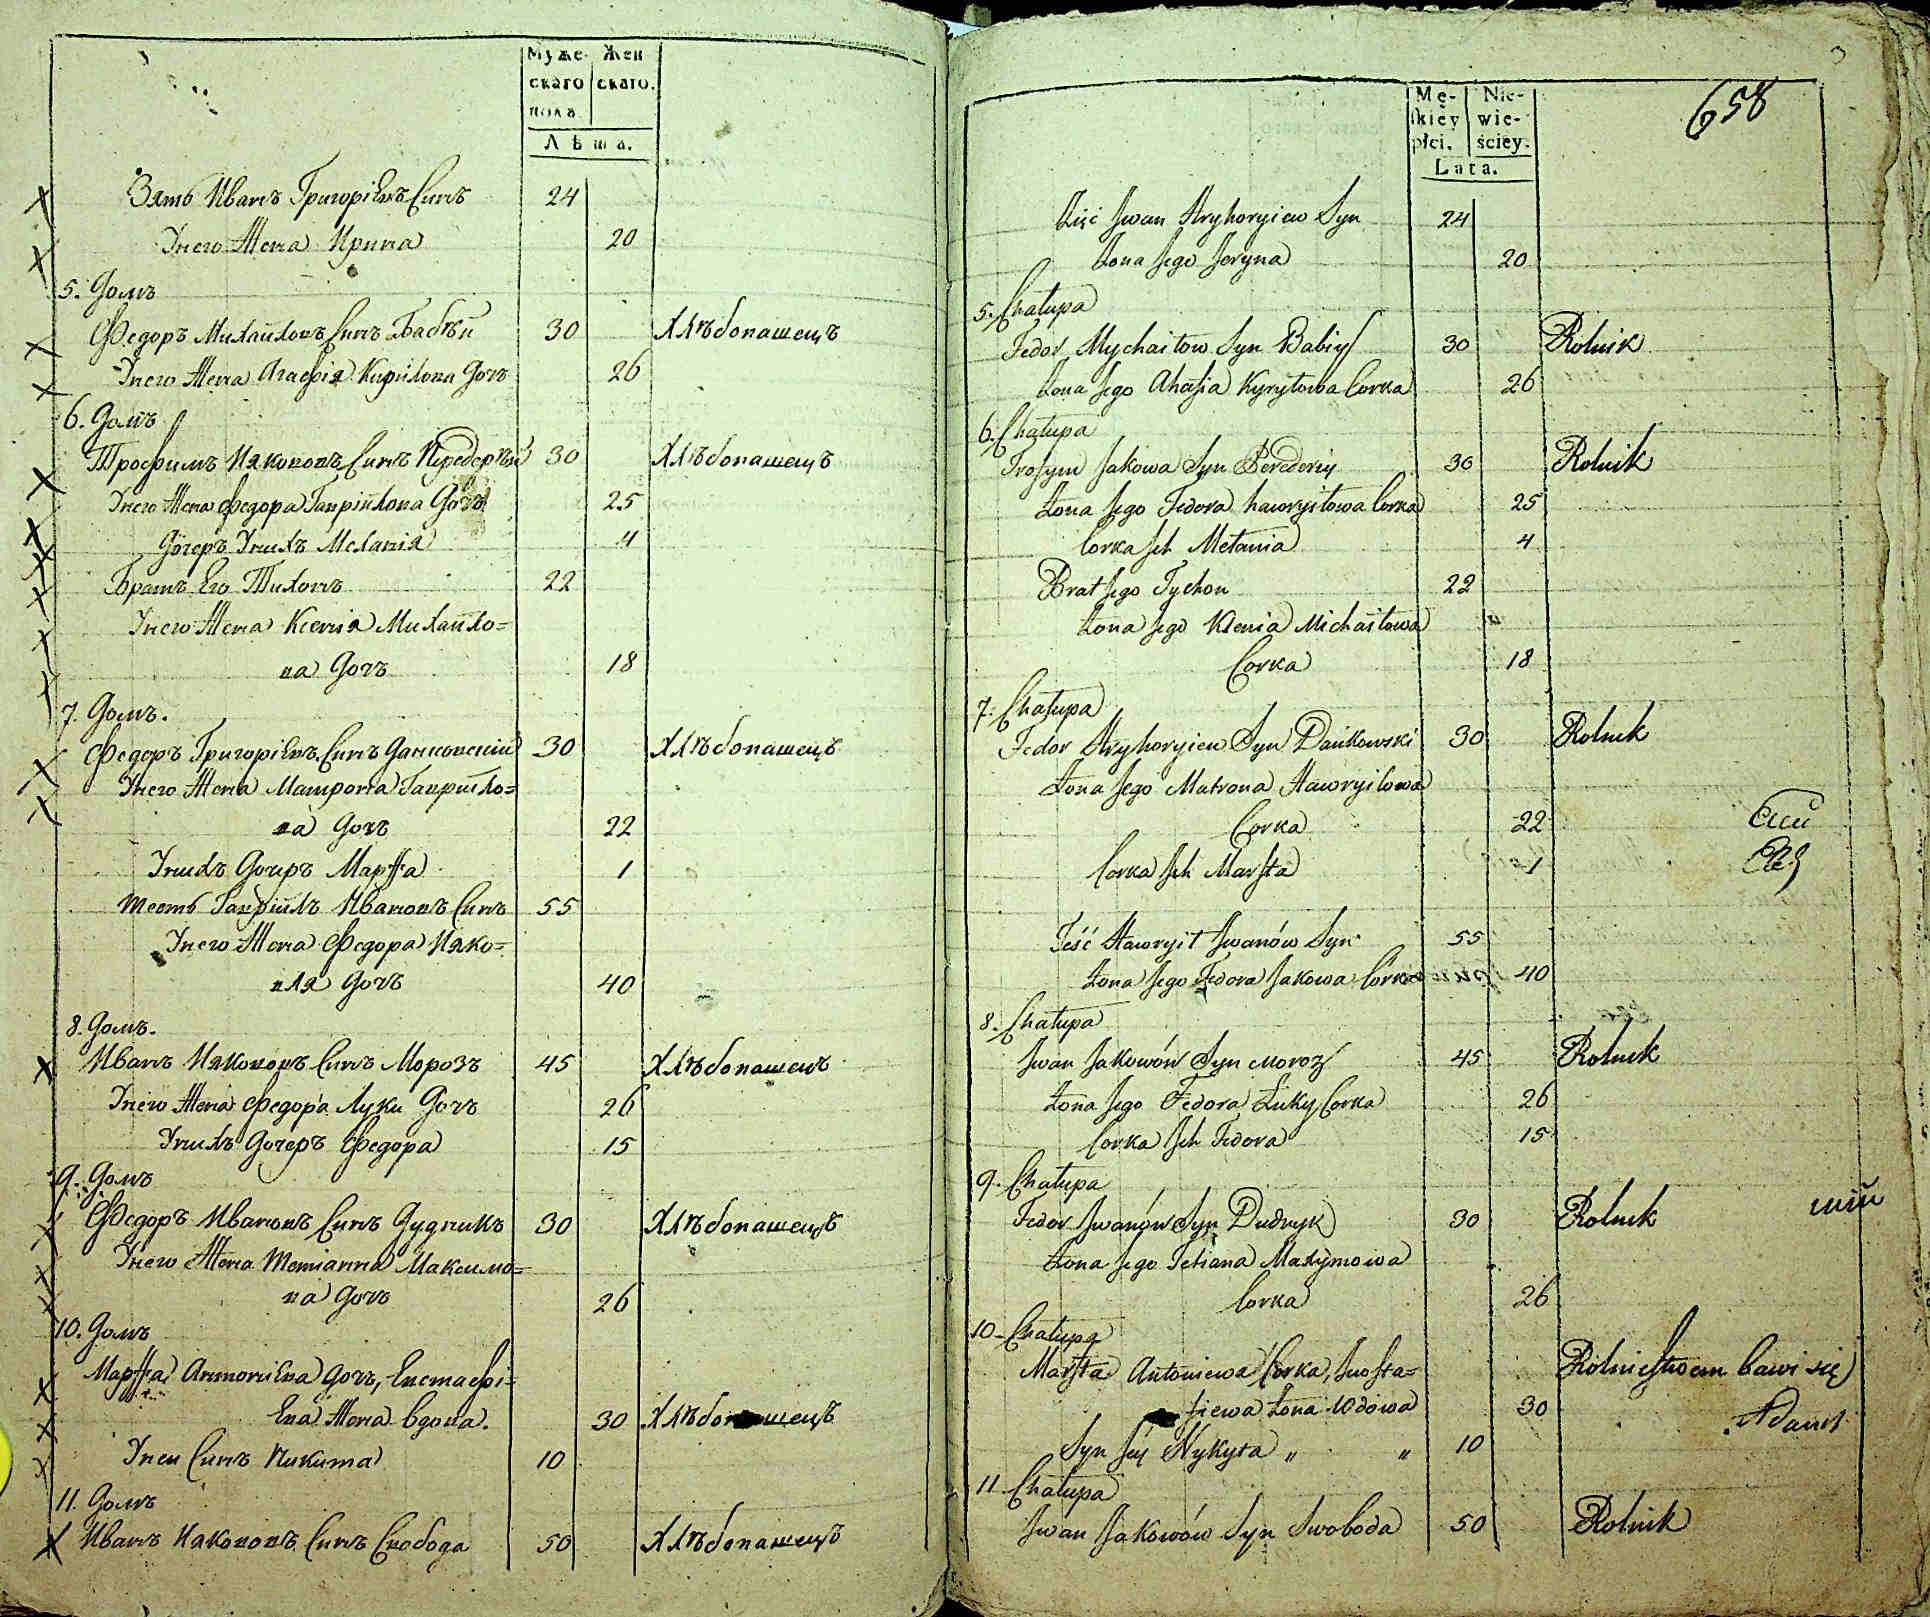 Муже- Жен
скаго скаго.
полъ
Лѣта.
Зять Иванъ Григоріевъ Синъ 24
Унего Жена Ирина 20
5. Домъ
Федоръ Михайловъ Синъ Бабѣй 30 Хлѣбопашецъ
Унего Жена Агафія Кирилова Дочъ 26
6. Домъ
Трофимъ Иякововъ Синъ Передерѣй 30 Хлѣбопашецъ
Унего Жена Федора Гавріилова Дочъ 25
Дочеръ Унихъ Меланія 4
Братъ Его Тихонъ 22
Унего Жена Ксенія Михайло=
ва Дочъ 18
7. Домъ.
Федоръ Григоріевъ Синъ Данковский 30 Хлѣбопашецъ
Унего Жена Матрона Гавриило=
ва Дочъ 22
Унихъ Дочеръ Марфа 1
Тесть Гавріилъ Ивановъ Синъ 55
Унего Жена Федора Ияко=
вля Дочъ 40
8. Домъ.
Иванъ Иякововъ Синъ Морозъ 45 Хлѣбопашецъ
Унего Жена Федора Луки Дочъ 26
Унихъ Дочеръ Федора 15
9. Домъ
Федоръ Ивановъ Синъ Дудникъ 30 Хлѣбопашецъ
Унего Жена Тетианна Максимо=
ва Дочъ 26
10. Домъ
Марфа Антониева Дочъ, Евстафі=
ева Жена Вдова. 30 Хлѣбопашецъ
Унеи Синъ Никита 10
11. Домъ
Иванъ Иякововъ Синъ Свобода 50 Хлѣбопашецъ
3
658
Mę- Nie-
skiey wie-
płci. ściey.
Lata.
Zięć Jwan Hryhoryiew Syn 24
Żona Jego Jeryna 20
5. Chałupa
Fedor Mychaiłow Syn Babiy 30 Rolnik
Żona Jego Ahafia Kyryłowa Corka 26
6. Chałupa
Trofym Jakowa Syn Perederiy 30 Rolnik
Żona Jego Fedora hawryiłowa Corka 25
Corka Jch Mełania 4
Brat Jego Tychon 22
Żona Jego Ksenia Michaiłowa
Corka 18
7. Chałupa
Fedor Hryhoryiew Syn Dańkowski 30 Rolnik
Żona Jego Matrona Hawryiłowa
Corka 22
Corka Jch Marfta 1
Teść Hawryił Jwanów Syn 55
Żona Jego Fedora Jakowa Córka 40
8. Chałupa
Jwan Jakowów Syn Moroz 45 Rolnik
Żona Jego Fedora Łuky Corka 26
Corka Jch Fedora 15
9. Chałupa
Fedor Jwanów Syn Dudnyk 30 Rolnik
Żona Jego Tetiana Maxymowa
Corka 26
10. Chałupa
Marfta Antoniewa Corka, Jwosta=
fiewa Żona Wdowa 30 Rolnictwem bawi się
Syn Jey Nykyta „ „ 10
11. Chałupa
Jwan Jakowów Syn Swoboda 50 Rolnik